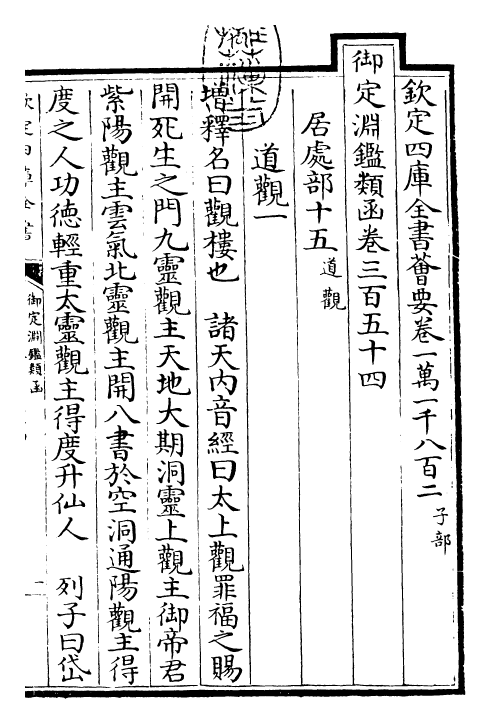 欽定四庫全書薈要卷一萬一千八百二 子部
御定淵鑑類函卷三百五十四
居處部十五 道觀
道觀一
增釋名曰觀樓也 諸天內音經曰太上觀罪福之賜
開死生之門九靈觀主天地大期洞靈上觀主御帝君
紫陽觀主雲氣北靈觀主開八書於空洞通陽觀主得
度之人功徳輕重太靈觀主得度升仙人 列子曰岱
御定淵鑑類函